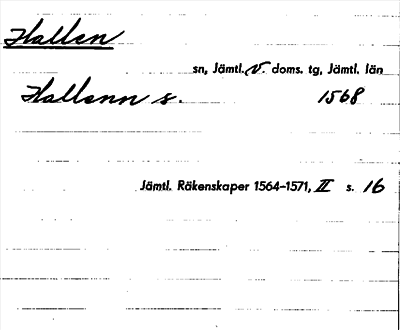 Hallen
sn, Jämtl. V. doms. tg, Jämtl. län
Hallenn s. 1568
Jämtl. Räkenskaper 1564–1571, II s. 16